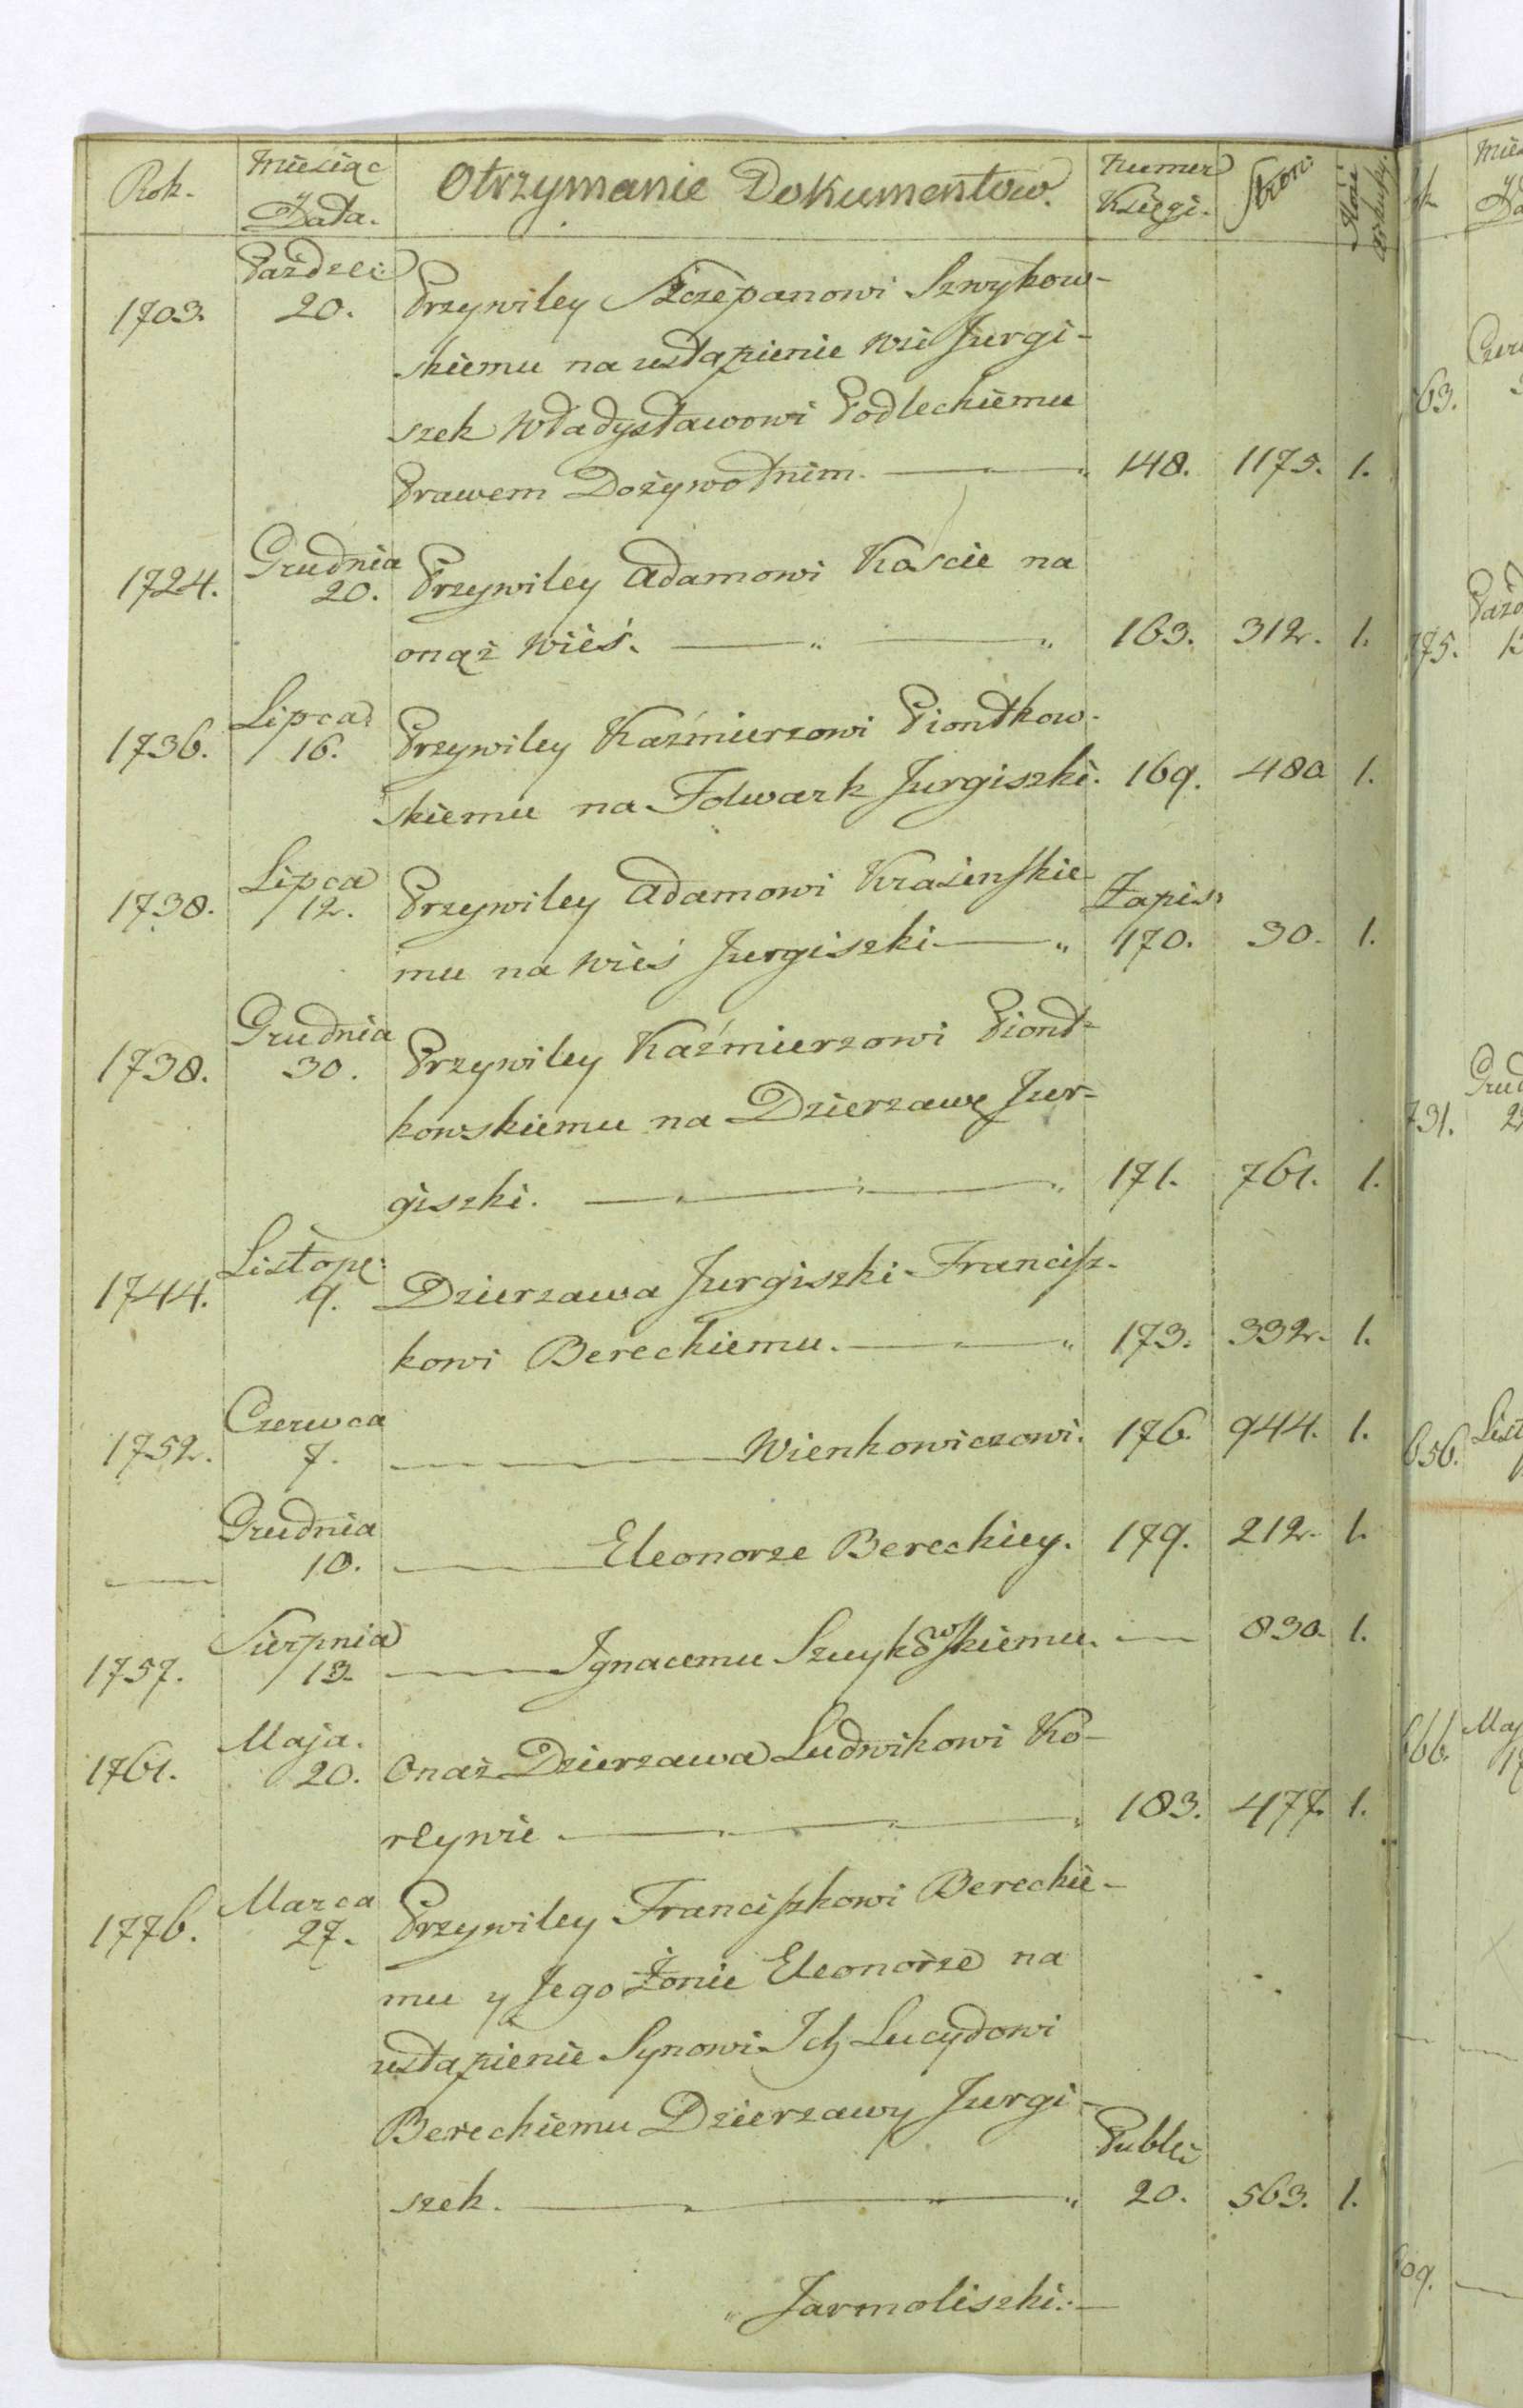 Rok. Miesiąc Data. Otrzymanie Dokumentow. Numer Księgi. Stron: Ilość arkuszy.
Paździe:
1703. 20. Przywiley Szczepanowi Szwykow-
skiemu na ustąpienie wsi Jurgi-
szek Władysławowi Podleckiemu
Prawem Dożywotnim. 148. 1175. 1.
Grudnia
1724. 20. Przywiley Adamowi Kascie na
onąż wieś. 163. 312. 1.
Lipca
1736. 16. Przywiley Kaźmierzowi Piontkow-
skiemu na Folwark Jurgiszki. 169. 480 1.
Lipca
1738. 12. Przywiley Adamowi Krasinskie- Zapis:
mu na wieś Jurgiszki 170. 30. 1.
Grudnia
1738. 30. Przywiley Kaźmierzowi Piont-
kowskiemu na Dzierzawę Jur-
giszki. 171. 761. 1.
Listop:
1744. 9. Dzierzawa Jurgiszki Francisz-
kowi Bereckiemu. 173. 332. 1.
Czerwca
1752. 7. Wienkowiczowi. 176. 944. 1.
Grudnia
10. Eleonorze Bereckiey. 179. 212. 1.
Sierpnia
1757. 13. Ignacemu Szuykowskiemu. — 830. 1.
Maja.
1761. 20. Onaż Dzierzawa Ludwikowi Ko-
reywie 183. 477. 1.
Marca
1776. 27. Przywiley Franciszkowi Bereckie-
mu y Jego Żonie Eleonorze na
ustąpienie Synowi Ich Lucydowi
Bereckiemu Dzierzawy Jurgi- Publi:
szek. 20. 563. 1.
Jarmoliszki.